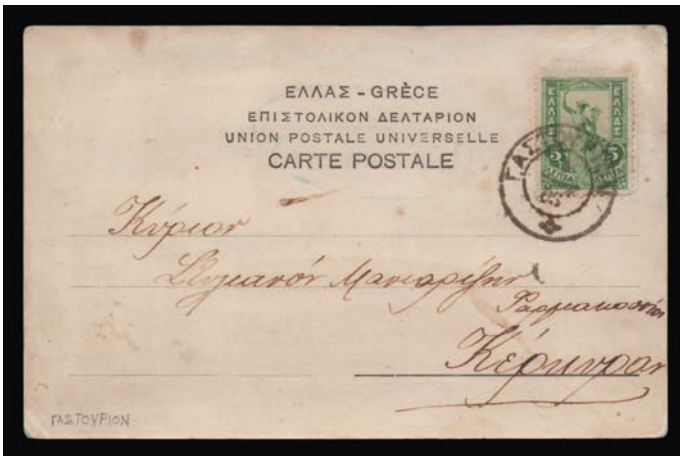 ΕΛΛΑΣ - GRÈCE
ΕΠΙΣΤΟΛΙΚΟΝ ΔΕΛΤΑΡΙΟΝ
UNION POSTALE UNIVERSELLE
CARTE POSTALE
ΕΛΛΑΣ
ΕΛΛΑΣ
5 5
ΛΕΠΤΑ ΛΕΠΤΑ
Κύριον
Στυλιανόν
Φαρμακοποιόν
Κέρκυραν
ΓΑΣΤΟΥΡΙΟΝ